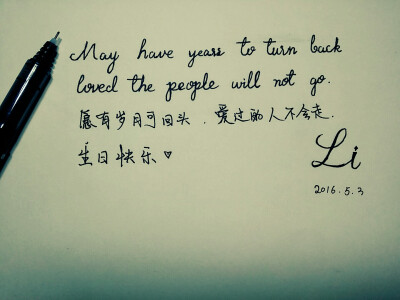 May have years to turn back
loved the people will not go.
愿有岁月可回头，爱过的人不会走.
生日快乐♡
Li
2016.5.3